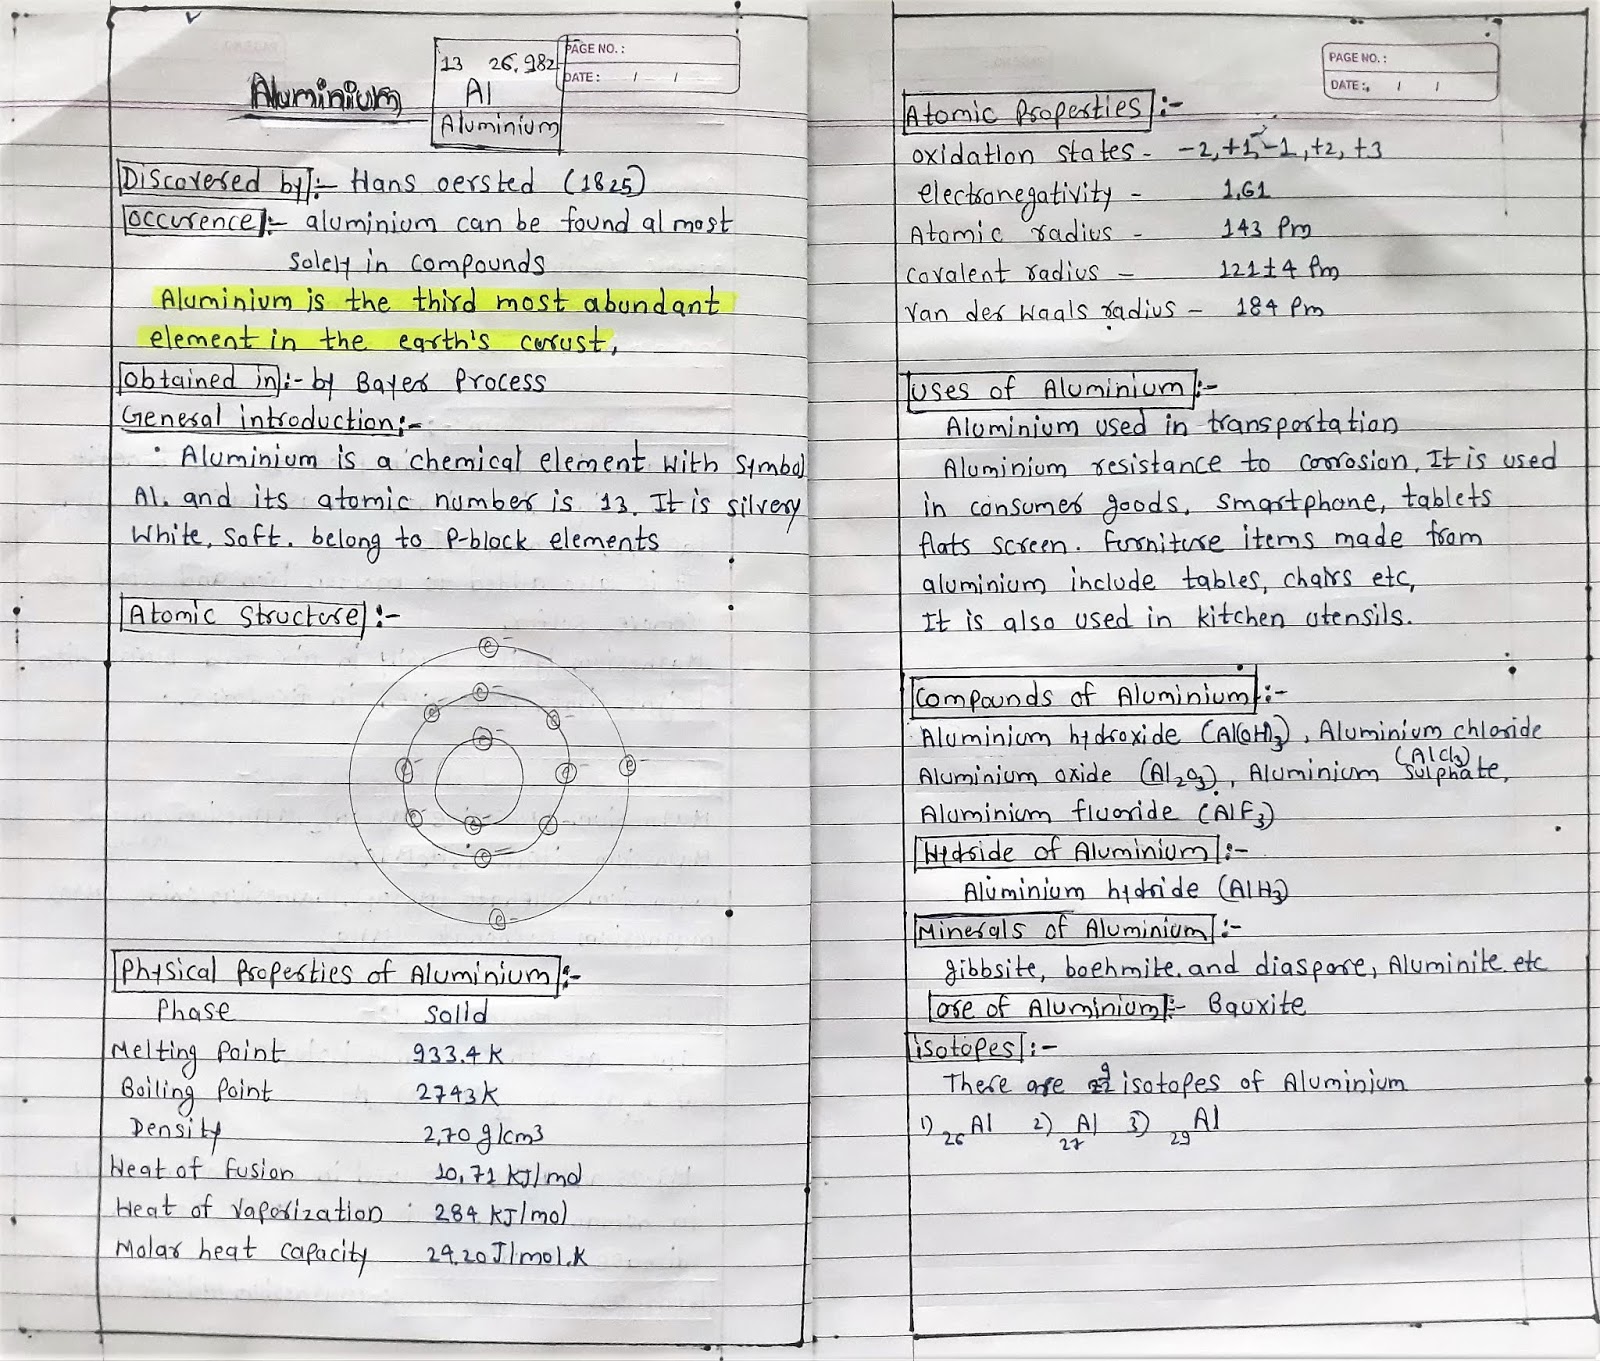 Aluminium
13 26.982
Al
Aluminium
PAGE NO. :
DATE : / /
Discovered by :- Hans oersted (1825)
occurence :- aluminium can be found almost
solely in compounds
Aluminium is the third most abundant
element in the earth's crust,
obtained in :- by Bayer Process
General introduction :-
• Aluminium is a chemical element with symbol
Al. and its atomic number is 13. It is silvery
White, Soft. belong to P-block elements
Atomic Structure :-
e- e- e- e- e- e- e- e- e- e- e- e- e-
Physical Properties of Aluminium :-
Phase solid
Melting Point 933.4 K
Boiling Point 2743 K
Density 2,70 g/cm3
Heat of fusion 10,71 KJ/mol
Heat of vaporization 284 KJ/mol
Molar heat capacity 24.20 J/mol.K
PAGE NO. :
DATE : / /
Atomic Properties :-
oxidation states - -2, +1, -1, +2, +3
electronegativity - 1,61
Atomic radius - 143 Pm
covalent radius - 121±4 Pm
Van der Waals radius - 184 Pm
Uses of Aluminium :-
Aluminium used in transportation
Aluminium resistance to corrosion. It is used
in consumer goods, smartphone, tablets
flats screen. Furniture items made from
aluminium include tables, chairs etc,
It is also used in kitchen utensils.
Compounds of Aluminium :-
Aluminium hydroxide (Al(OH)3), Aluminium chloride
(AlCl3)
Aluminium oxide (Al2O3), Aluminium Sulphate,
Aluminium fluoride (AlF3)
Hydride of Aluminium :-
Aluminium hydride (AlH3)
Minerals of Aluminium :-
gibbsite, boehmite. and diaspore, Aluminite. etc
ore of Aluminium :- Bauxite
isotopes :-
There are 9 isotopes of Aluminium
1) 26Al 2) 27Al 3) 29Al